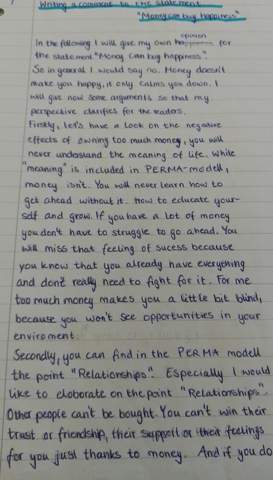 Writing a comment to the statement
"Money can buy happiness"
opinion
In the following I will give my own for
the statement "Money can buy happiness".
So in general I would say no. Money doesn't
make you happy, it only calms you down. I
will give now some arguments so that my
perspective clarifies for the readers.
Firstly, let's have a look on the negative
effects of owning too much money, you will
never understand the meaning of life. While
"meaning" is included in PERMA-modell,
money isn't. You will never learn how to
get ahead without it. How to educate your-
self and grow. If you have a lot of money
you don't have to struggle to go ahead. You
will miss that feeling of sucess because
you know that you already have everything
and don't really need to fight for it. For me
too much money makes you a little bit blind,
because you won't see opportunities in your
enviroment.
Secondly, you can find in the PERMA modell
the point "Relationships". Especially I would
like to eloborate on the point "Relationships".
Other people can't be bought. You can't win their
trust or friendship, their support or their feelings
for you just thanks to money. And if you do